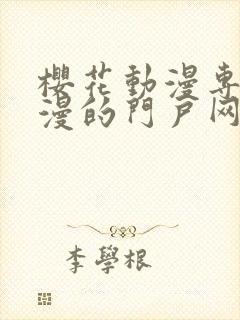 櫻花動漫专
漫的門戶网
李學根